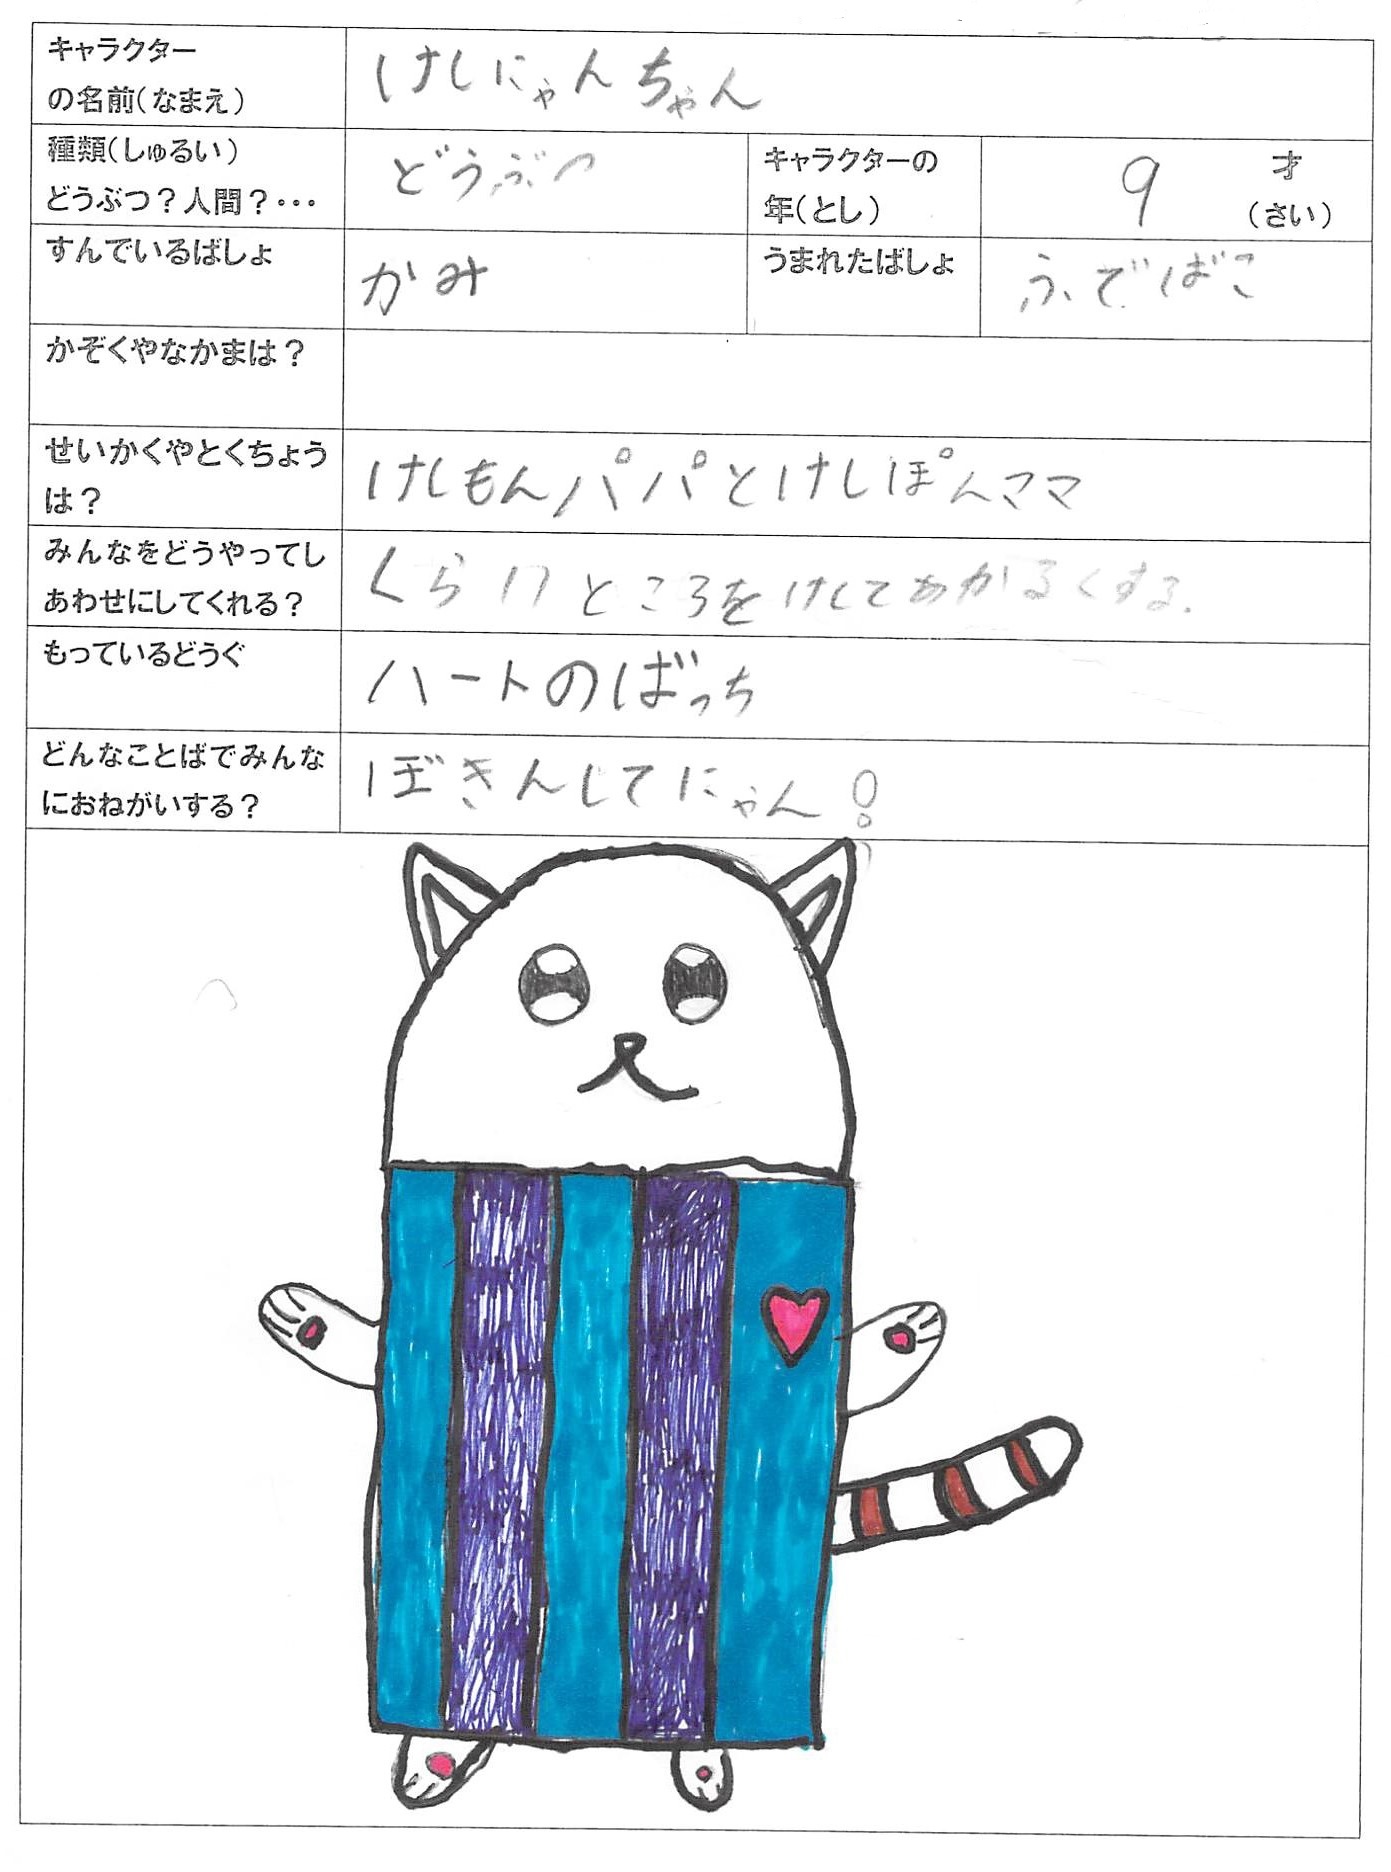 キャラクター
の名前(なまえ)
けしにゃんちゃん
種類(しゅるい)
どうぶつ?人間?・・・
どうぶつ
キャラクターの
年(とし)
9
才
(さい)
すんでいるばしょ
かみ
うまれたばしょ
ふでばこ
かぞくやなかまは?
せいかくやとくちょう
は?
けしもんパパとけしぽんママ
みんなをどうやってし
あわせにしてくれる?
くらいところをけしてあかるくする.
もっているどうぐ
ハートのばっち
どんなことばでみんな
におねがいする?
ぼきんしてにゃん!